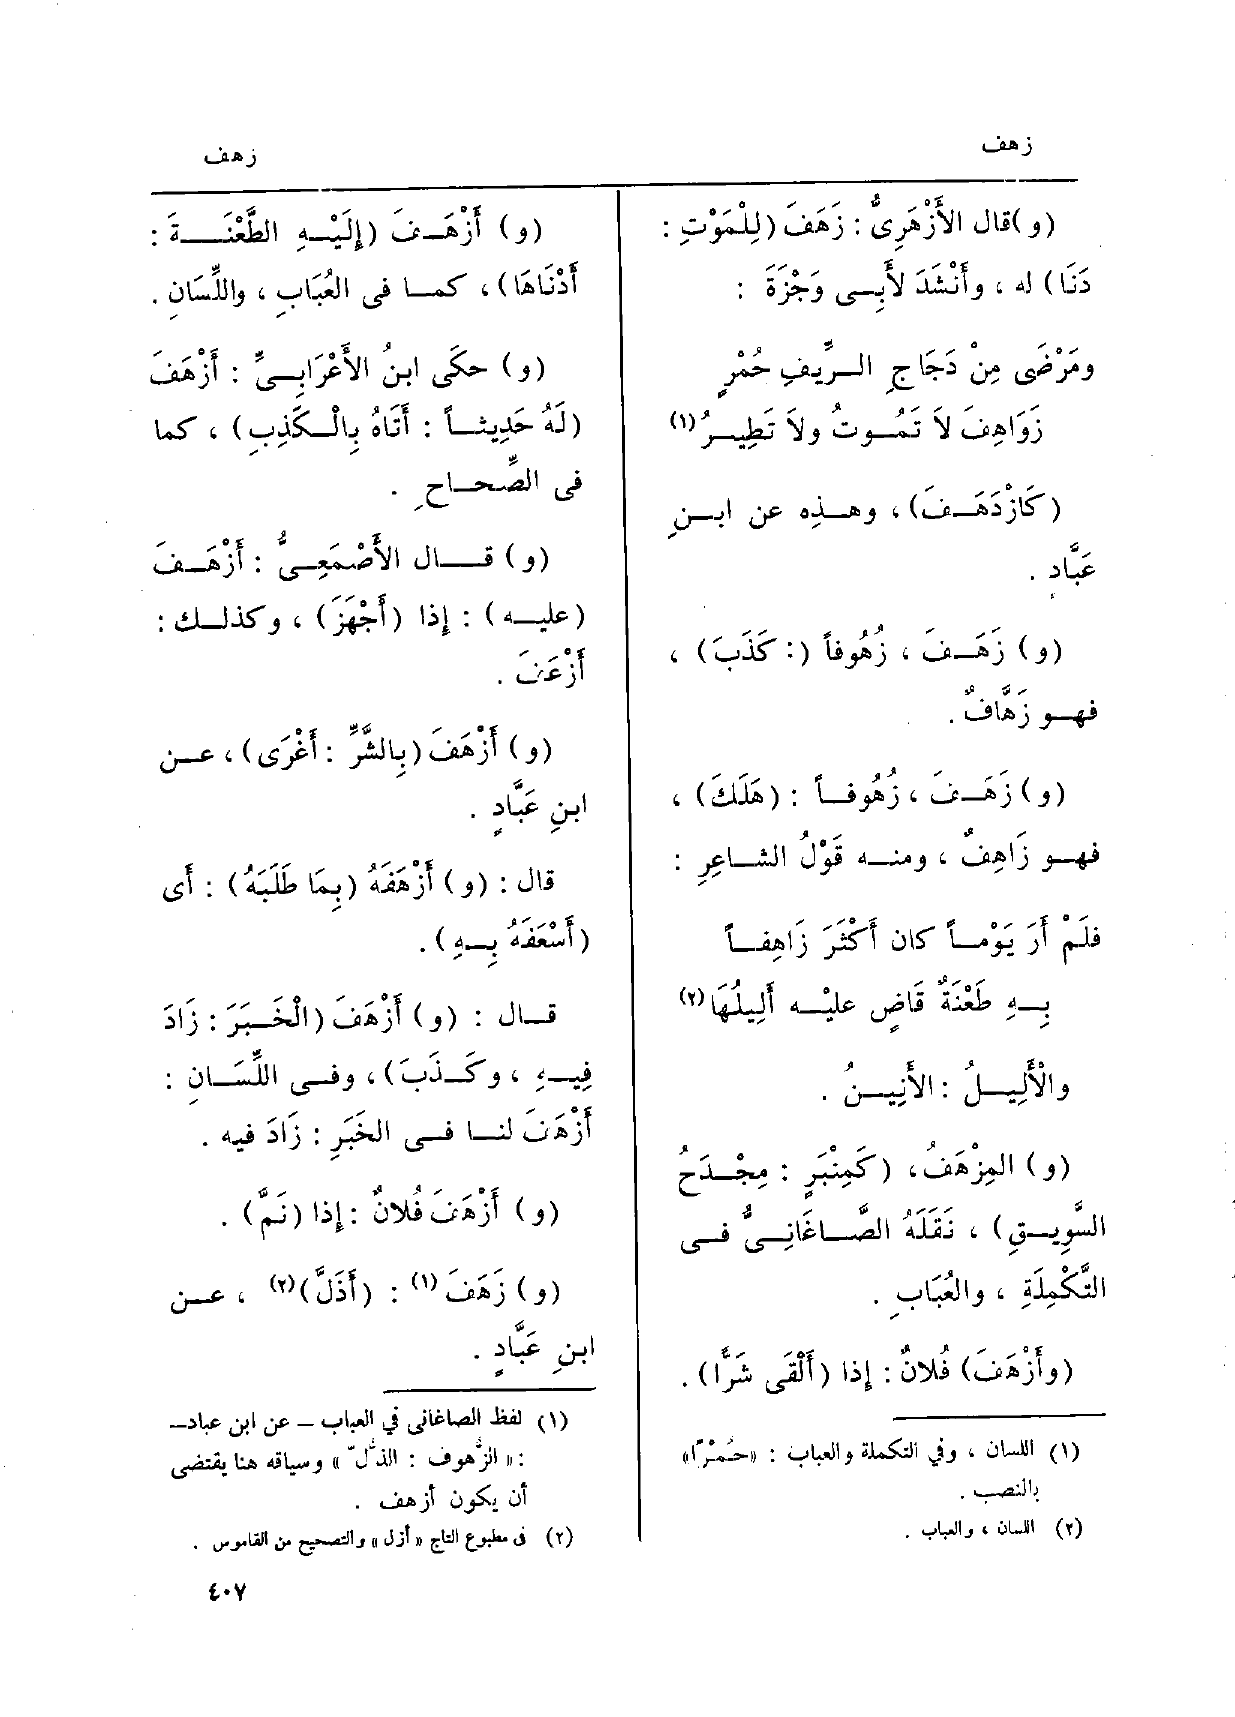 زهف
(و)قال الأَزْهَرِىُّ : زَهَفَ (لِلْمَوْتِ :
دَنَا) له ، وأَنْشَدَ لأَبِــى وَجْزَةَ :
ومَرْضَى مِنْ دَجَاجِ الــرِّيفِ حُمْرٍ
زَوَاهِفَ لاَ تَمُــوتُ ولاَ تَطِيــرُ(١)
(كَازْدَهَــفَ) ، وهــذه عن ابــنِ
عَبَّاد .
(و) زَهَــفَ ، زُهُوفاً (: كَذَبَ) ،
فهــو زَهَّافٌ .
(و) زَهَــفَ ، زُهُوفــاً : (هَلَكَ) ،
فهــو زَاهِفٌ ، ومنــه قَوْلُ الشاعِرِ :
فلَمْ أَرَ يَوْمــاً كان أَكْثَرَ زَاهِفــاً
بِــهِ طَعْنَةٌ قَاضٍ عليْــه أَلِيلُهَا(٢)
والْأَلِيــلُ : الأَنِيــنُ .
(و) المِزْهَفُ، (كَمِنْبَرٍ : مِجْــدَحُ
السَّوِيــقِ) ، نَقَلَهُ الصَّــاغَانِــىُّ فــى
التَّكْمِلَةِ ، والعُبَابِ .
(وأَزْهَفَ) فُلانٌ : إذا (أَلْقَى شَرًّا) .
(١) اللسان ، وفي التكملة والعباب : «حُمْرًا»
بالنصب .
(٢) اللسان ، والعباب .
زهف
(و) أَزْهَــفَ (إِلَيْــهِ الطَّعْنَــةَ :
أَدْنَاهَا) ، كمــا فى العُبَابِ ، واللِّسَانِ .
(و) حكَى ابنُ الأَعْرَابِــىِّ : أَزْهَفَ
(لَهُ حَدِيثــاً : أَتَاهُ بِالْــكَذِبِ) ، كما
فى الصِّحــاحِ .
(و) قــال الأَصْمَعِــىُّ : أَزْهَــفَ
(عليــه) : إذا (أَجْهَزَ) ، وكذلــك :
أَزْعَفَ .
(و) أَزْهَفَ (بِالشَّرِّ : أَغْرَى) ، عــن
ابنِ عَبَّادٍ .
قال : (و) أَزْهَفَهُ (بِمَا طَلَبَهُ) : أَى
(أَسْعَفَهُ بِــهِ) .
قــال : (و) أَزْهَفَ (الْخَبَرَ : زَادَ
فِيــهِ ، وكَــذَبَ) ، وفــى اللِّسَــانِ :
أَزْهَفَ لنــا فــى الخَبَرِ : زَادَ فيه .
(و) أَزْهَفَ فُلانٌ : إذا (نَمَّ) .
(و) زَهَفَ (١) : (أَذَلَّ)(٢) ، عــن
ابنِ عَبَّادٍ .
(١) لفظ الصاغانى في العباب – عن ابن عباد–
: « الزُّهوف : الذُّلّ » وسياقه هنا يقتضى
أن يكون أزهف .
(٢) فى مطبوع التاج « أزل » والتصحيح من القاموس .
٤٠٧